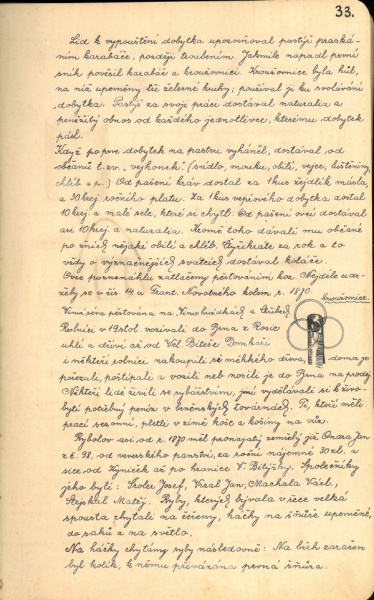 33.
Lid k vypouštění dobytka upozorňoval pastýř praská-
ním karabáče, později troubením. Jakmile napadl první
sníh pověsil karabáč a kroužovnici. Kroužovnice byla hůl,
na níž upevněny tři železné kruhy; používal jí ku svolávání
dobytka. Pastýř za svoji práci dostával naturalia a
peněžitý obnos od každého jednotlivce, kterému dobytek
pásl.
Když poprve dobytek na pastvu vyháněl, dostával od
občanů t.zv. „vejhonek" (sádlo, mouku, obilí, vejce, luštěniny,
chléb a p.) Od pasení krav dostal za 1 kus žejdlík másla,
a 30 krej. ročního platu. Za 1 kus vepřového dobytka dostal
10 krej a malé sele, které si chytl. Od pasení ovcí dostával
asi 10 krej a naturalia. Kromě toho dávali mu občané
po žních nějaké obilí a chléb. Čtyřikráte za rok a to
vždy o význačnějších svatcích dostával koláče.
Ovce pozvenáhlu zatlačeny pěstováním koz. Nejdéle udr-
žely se v čís. 14 u Frant. Novotného kolem r. 1890.
Kroužovnice.
Vinná réva pěstována na Vinohrádkách a
Rolníci v 19 stol. vozívali do Brna z Rosic
uhlí a dříví až od Vel. Biteše. Domkaři
i někteří rolníci nakoupili si měkkého dříva, doma je
pořezali, poštípali a vozili neb nosili je do Brna na prodej.
Někteří lidé živili se rybářstvím, jiní vydělávali si k živo-
bytí potřebný peníz v brněnských továrnách. Ti, kteří měli
práci sezonní, pletli v zimě koše a košiny na vůz.
Rybolov asi od r. 1870 měl pronajatý zemřelý již Ondra Jan
z č. 98. od veverského panství, za roční nájemné 30 zl, a
sice od Kyniček až po hranice V. Bitýšky. Společníky
jeho byli: Skoler Josef, Vízal Jan, Machala Karel,
Stejskal Matěj. Ryby, kterých bývala v řece velká
spousta chytali na čeřeny, háčky na šňůře upevněné,
do saků a na světlo.
Na háčky chytány ryby následovně: Na břeh zaražen
byl kolík, k němu přivázána pevná šňůra.